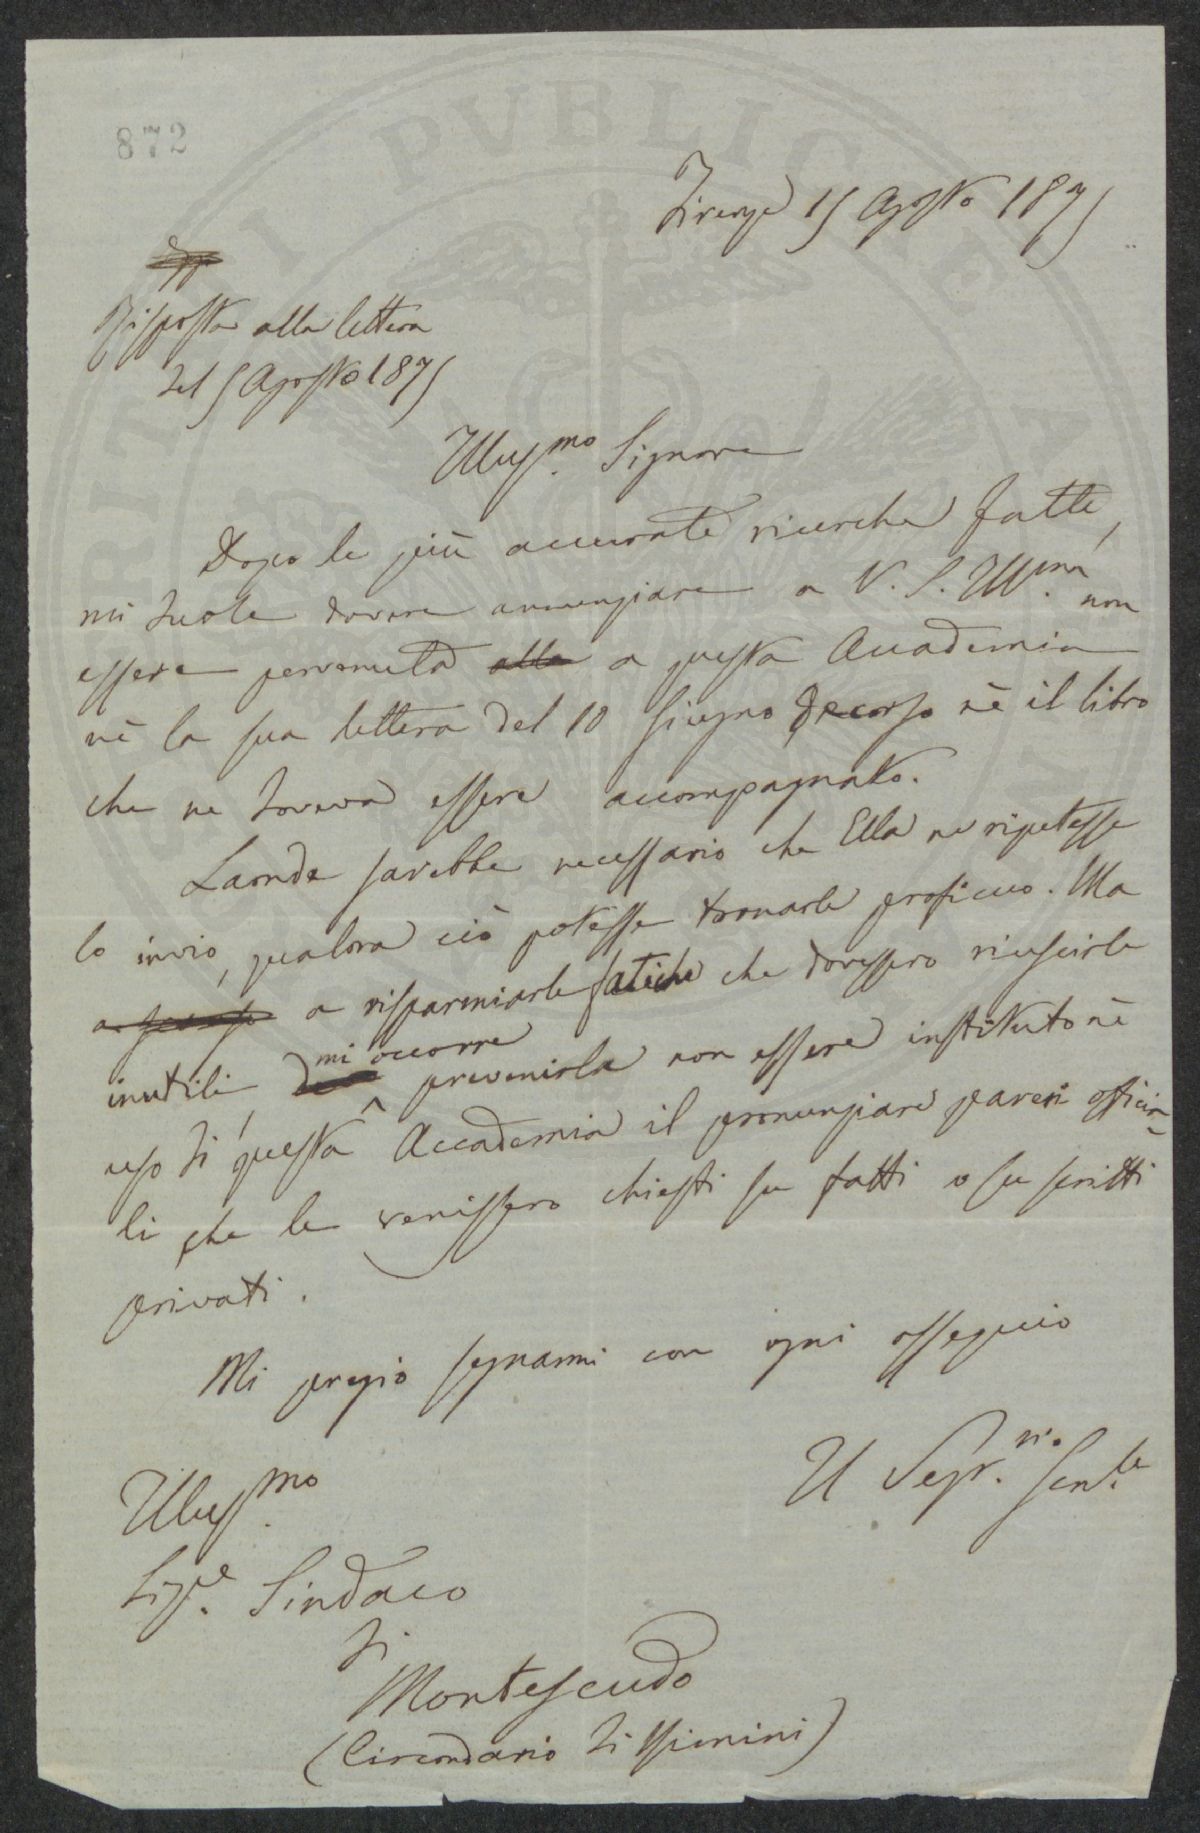 872
Firenze 15 Agosto 1875
Risposta alla lettera
del 5 Agosto 1875
Illuss.mo Signore
Dopo le più accurate ricerche fatte,
mi duole dovere annunziare a V. S. Ill.ma non
essere pervenuta alla a questa Accademia
nè la sua lettera del 10 Giugno decorso nè il libro
che ne doveva essere accompagnato.
Laonde sarebbe necessario che Ella ne ripetesse
lo invio, qualora ciò potesse tornarle proficuo. Ma
a risparmiarle fatiche che dovessero riuscirle
inutili, mi occorre prevenirla non essere instituto nè
uso di questa Accademia il pronunziare pareri officia-
li che le venissero chiesti su fatti o su scritti
privati.
Mi pregio segnarmi con ogni ossequio
Il Segr.rio Gen.le
Illuss.mo
Sig.e Sindaco
di
Montescudo
(Circondario di Rimini)
PVBLICAE